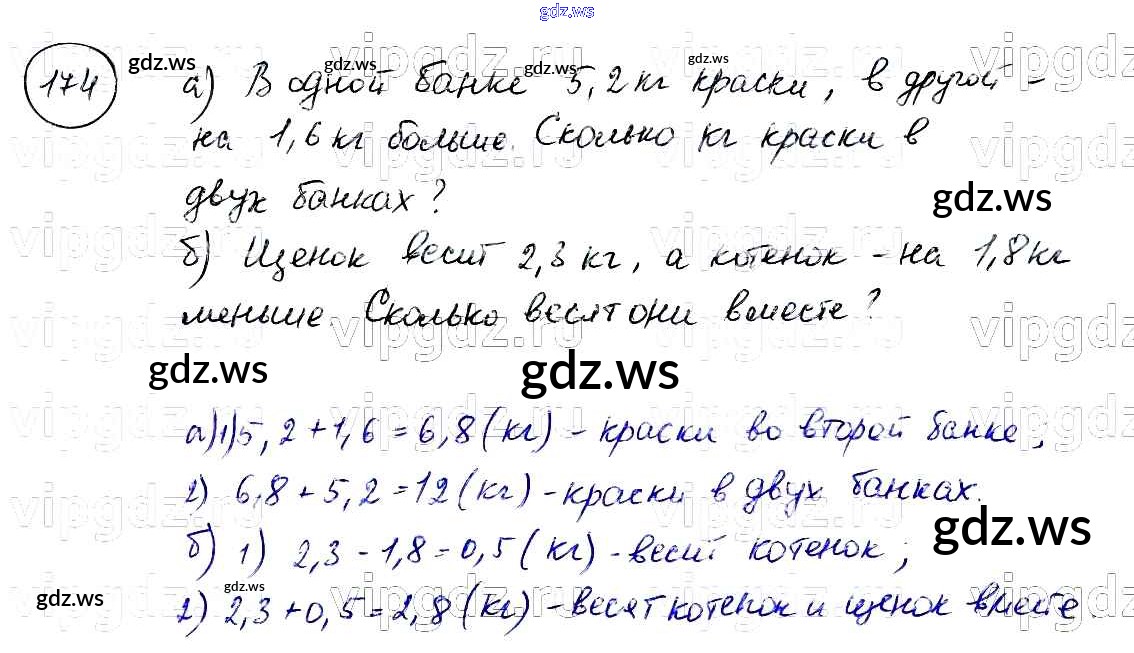 gdz.ws
174 а) В одной банке 5,2 кг краски, в другой -
на 1,6 кг больше. Сколько кг краски в
двух банках?
б) Щенок весит 2,3 кг, а котенок - на 1,8 кг
меньше. Сколько весят они вместе?
gdz.ws gdz.ws
а) 1) 5,2 + 1,6 = 6,8 (кг) - краски во второй банке;
2) 6,8 + 5,2 = 12 (кг) - краски в двух банках.
gdz.ws
б) 1) 2,3 - 1,8 = 0,5 (кг) - весит котенок;
2) 2,3 + 0,5 = 2,8 (кг) - весят котенок и щенок вместе.
gdz.ws